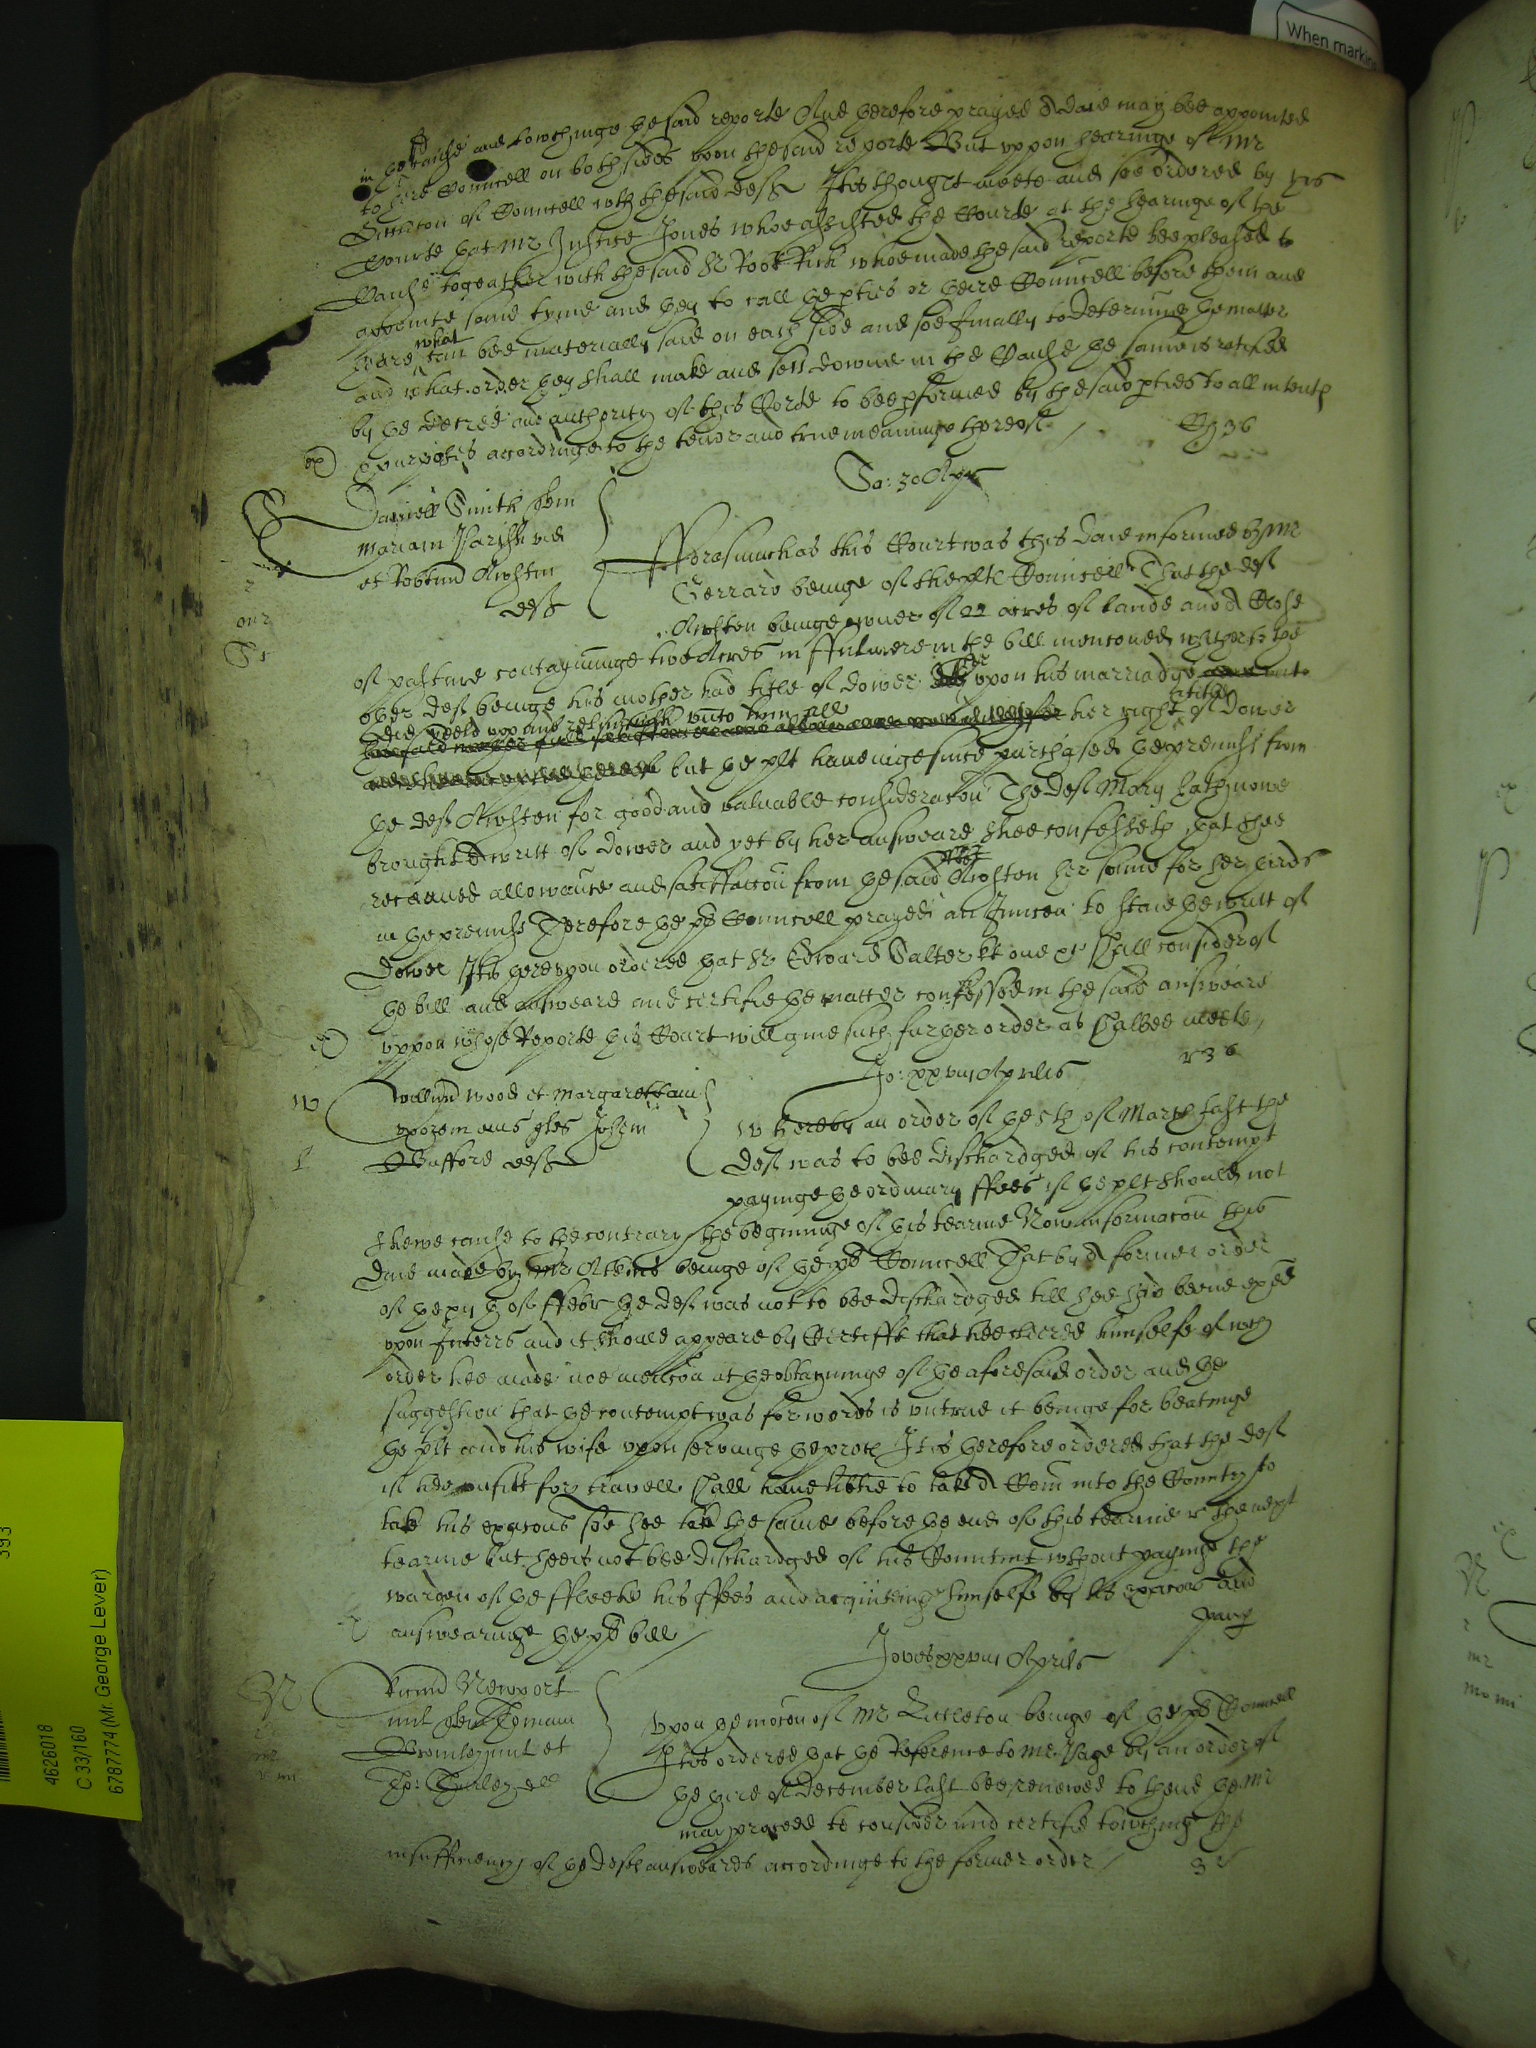 When markin
in the cause and towchinge the said reporte And therefore prayed a daie may bee appointed
to heare Councell on both sides upon the said reporte But uppon hearinge of Mr
of Councell with the said deft It is thought meete and soe ordered by this
Courte that Mr Justice Jones whoe assisted the Courte at the hearinge of the
Cause togeather with the said Sr whoe made the said reporte bee pleased to
appointe some tyme and they to call the pties or theire Councell before them and
heare what can bee materially said on each side and soe finally to determine the matter
and what order they shall make and sett downe in the Cause the same is ratified
by the decree and authority of this Corte to bee pformed by the said pties to all intents
& purposes accordinge to the tenor and true meaninge thereof
Sa: 30 Apr
Daniell Smith
Mariam vid
et Robtum Aishton
deft
Forasmuch as this Court was this daie informed by Mr
Gerrard beinge of the plts Councell That the deft
Aishton beinge owner of 22 acres of lande and a Close
of pasture contayninge two Acres in in the bill menconed wherto the
other deft beinge his mother had title of dower upon his marriadge
did yeeld upp and relinquish unto him all her right & title of dower
but the plt haveinge since purchased the premiss from
the deft Aishton for good and valuable consideracon The deft Mary hath nowe
brought a writt of dower and yet by her answeare shee confesseth that shee
receaved allowance and satisfaccon from the said Aishton her sonne for her thirds
in the premiss Therefore the pts Councell prayed an Juncon to staie the writt of
dower It is thereupon ordered that Sr Edward Salter kt one &c shall consider of
the bill and answeare and certifie the matter confessed in the said answeare
uppon whose Reporte this Court will give such further order as shalbee meete
Jo: xxviii Aprilis
Willmd Wood et Margarettam
uxorem eius Johem
Bufford deft
Whereby an order of the 5th of March last the
deft was to bee dischardged of his contempt
payinge the ordinary ffees if the plt should not
shewe cause to the contrary the begininge of this tearme Now informacon this
daie made by Mr Atkins beinge of the pts Councell That by a former order
of the of ffebr the deft was not to bee dischardged till hee had beene exed
upon Interrs and it should appeare by Certifft that hee cleered himselfe of wch
order hee made noe mencon at the obtayninge of the aforesaid order and the
suggestion that the contempt was for words is untrue it beinge for beatinge
the plt and his wife upon servinge the proces It is therefore ordered that the deft
if hee unfitt for travell shall have libtie to take a Com into the Country to
take his exacons soe hee take the same before the end of this tearme or the next
tearme but hee is not bee dischardged of his Comitmt without payinge the
warden of the ffleete his ffees and acquittinge himselfe by his exacons and
answearinge the pts bill
Jovis xxviii Aprilis
Ricum Newport
mil Thomam
Bromley mil et
Upon the mocon of Mr Littleton beinge of the pts Councell
It is ordered that the Reference to Mr Page by an order of
the third of December last bee renewed to thend the Mr
may proceed to consider and certifie towchinge the
insufficiency of the defts answeares accordinge to the former order
393
4626018
C 33/160
6787774 (Mr. George Lever)